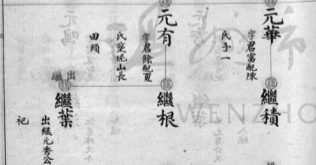 元華
字君富配陳
氏子一
繼積
元有
字君餘配夏
氏塟坭山長
田頭
繼根
出繼
繼葉
出繼元秀公
祀
WENZHO